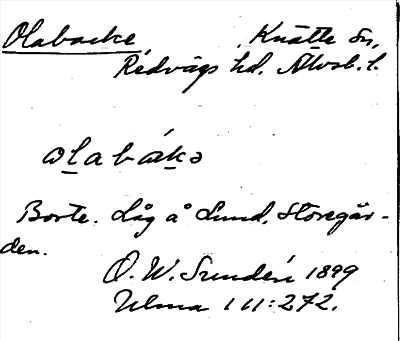 Olabacke, Knätte sn,
Redvägs hd. Älvsb. l.
ɷlabákə
Borte. Låg å Lund, Storegår-
den.
O. W. Sundén 1899
Ulma 111:272.